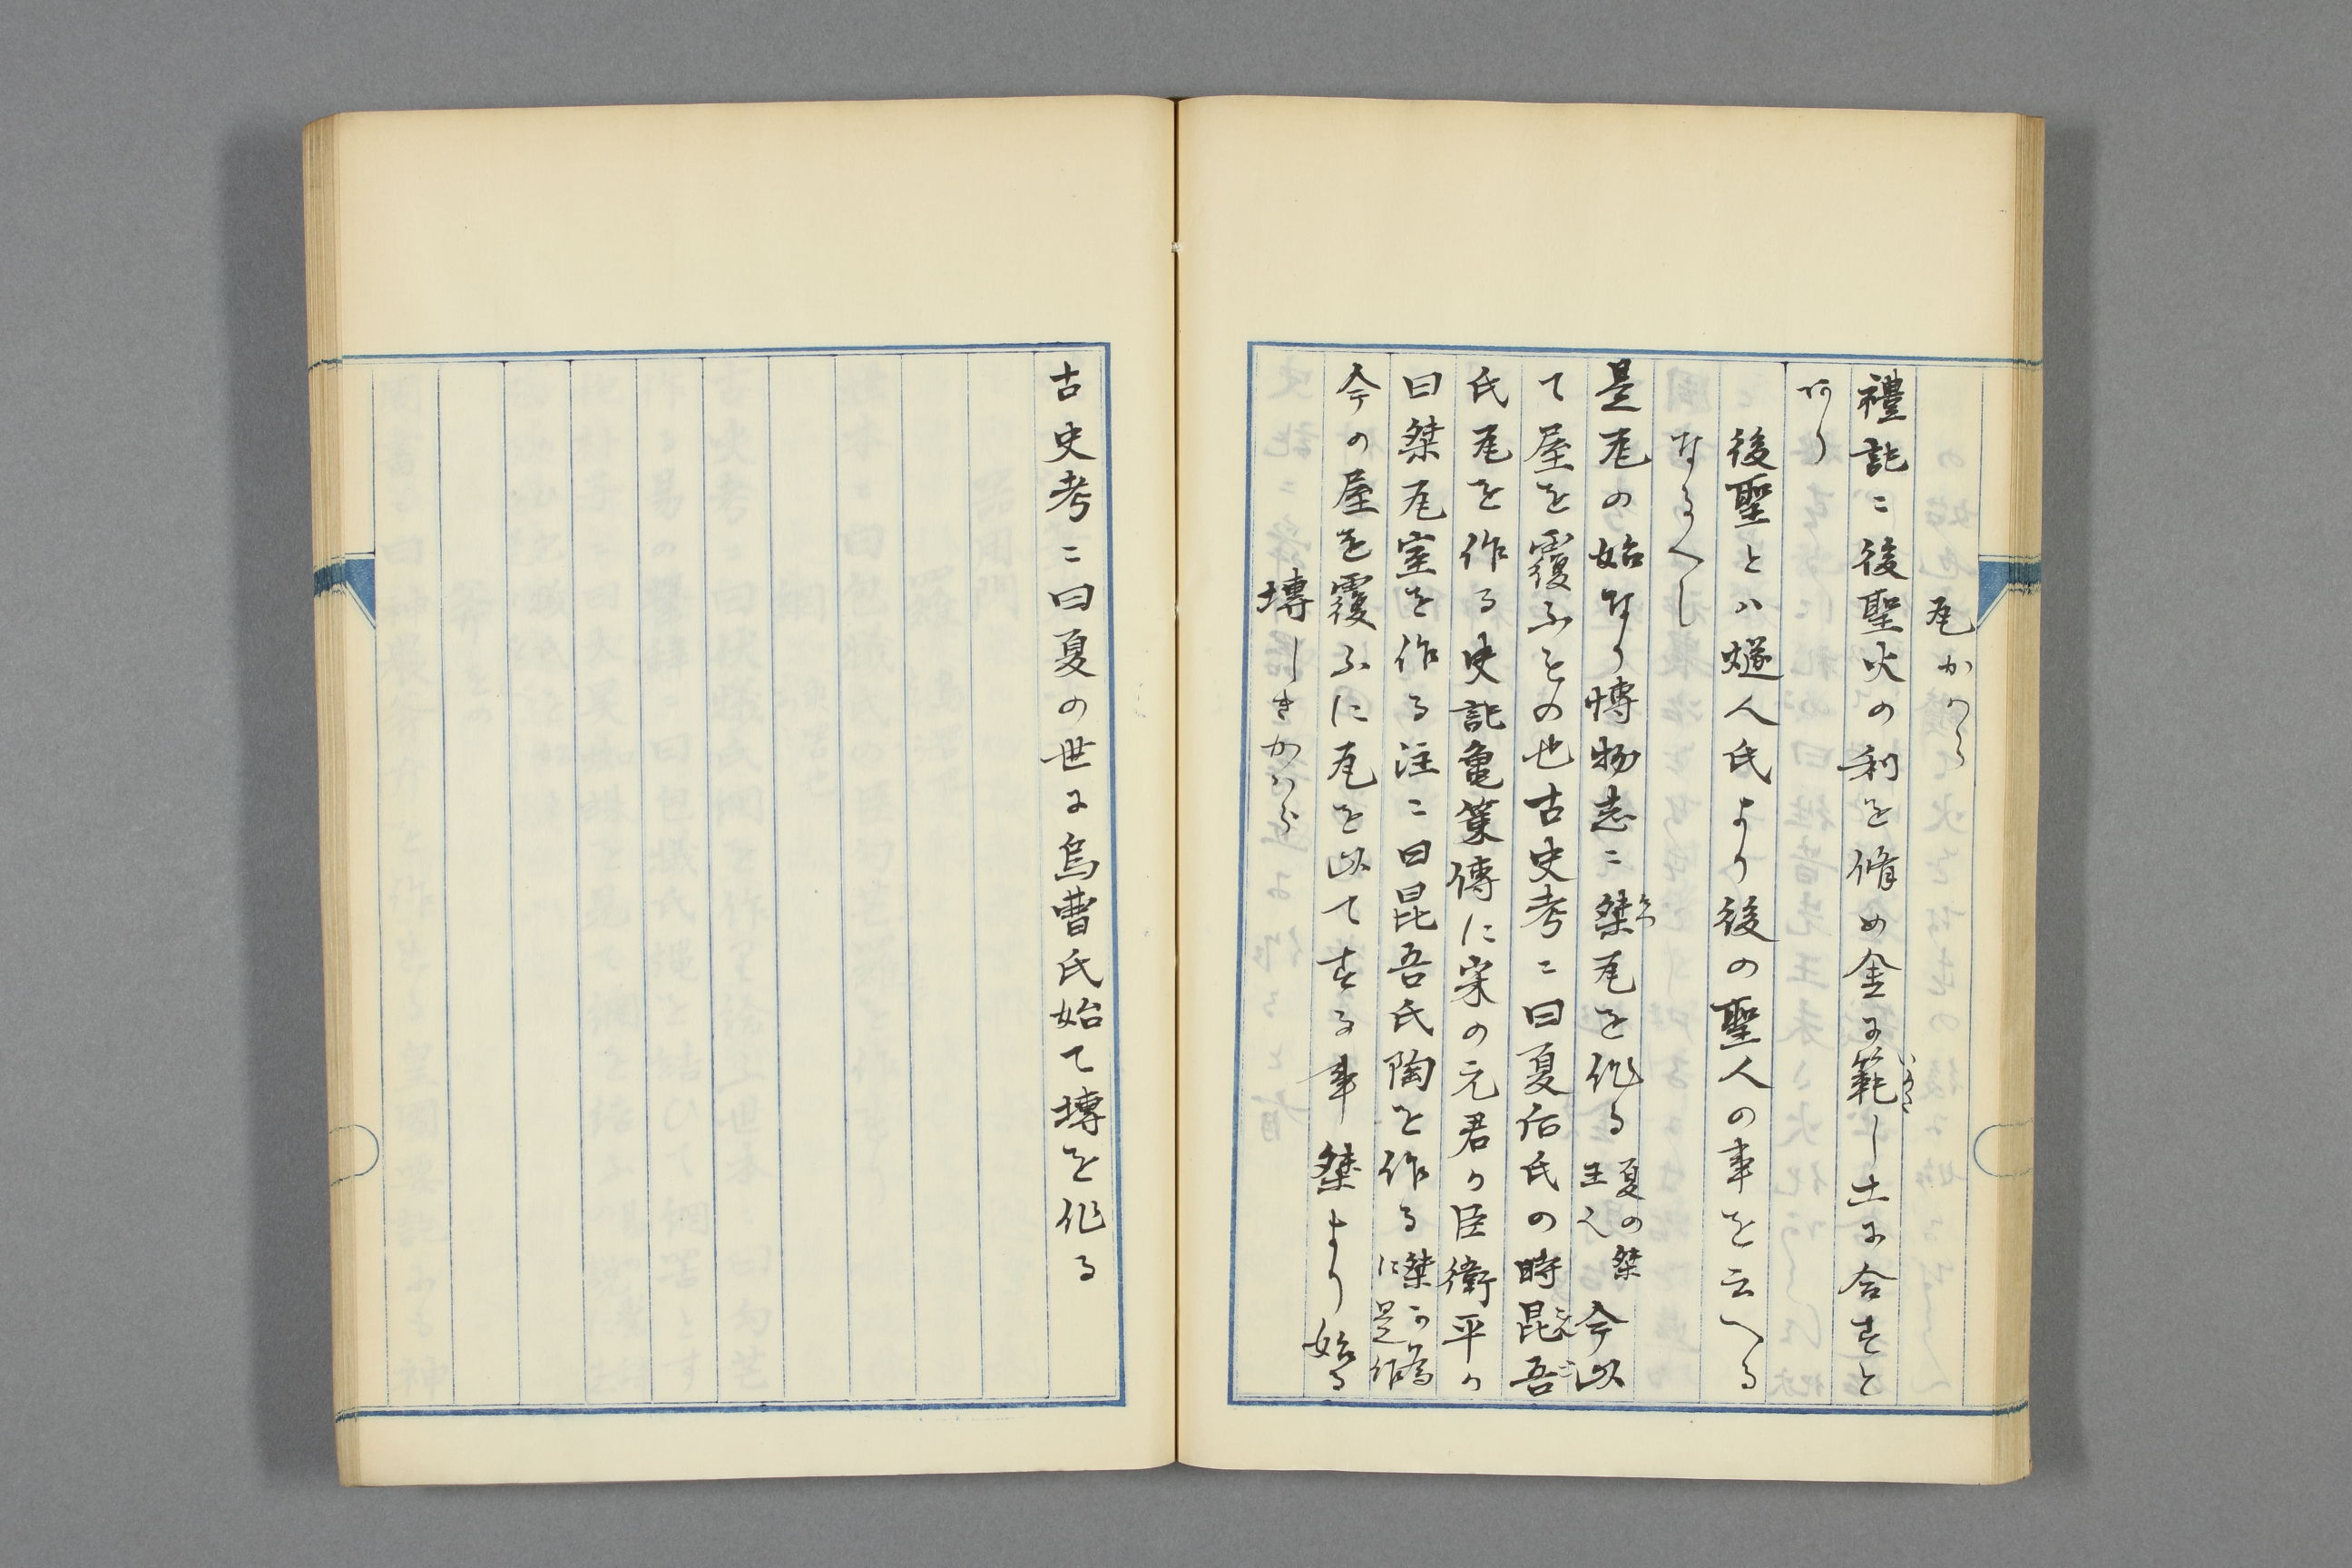 瓦 かわら
禮記ニ後聖火の利を脩め金に範し土に合すと
あり
後聖とハ燧人氏より後の聖人の事を云へる
なるへし
是瓦の始なり博物志ニ桀瓦を作る 夏の桀王也 今以
て屋を覆ふもの也古史考ニ曰夏后氏の時昆吾
氏瓦を作る史記亀策傳に宋の元君の臣衛平か
曰桀瓦室を作る注ニ曰昆吾氏陶を作る桀か為に是作
今の屋を覆ふに瓦を以てする事桀より始る
塼 しきかハら
古史考ニ曰夏の世に烏曹氏始て塼を作る